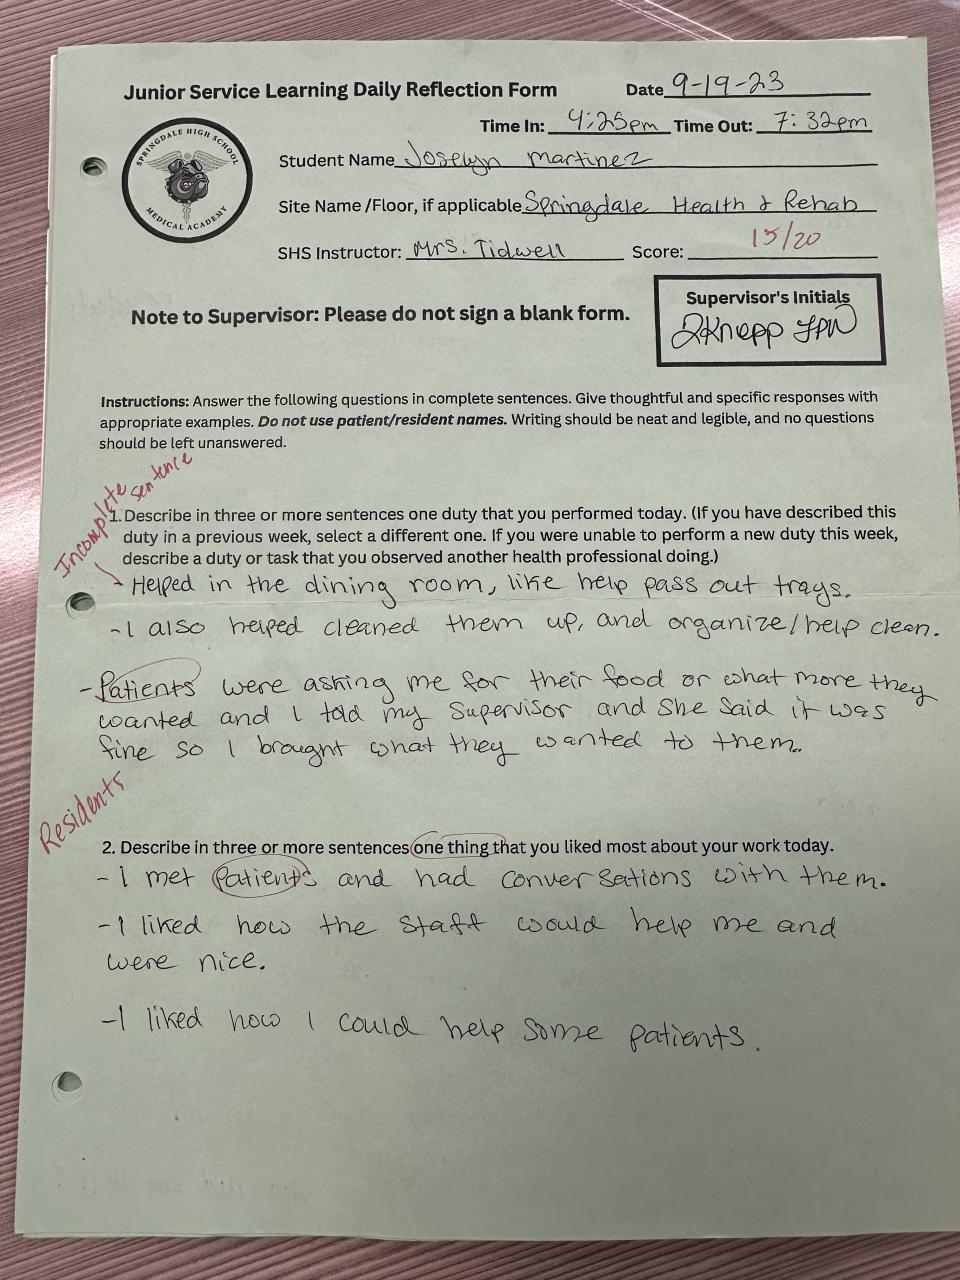 Junior Service Learning Daily Reflection Form
Date 9-19-23
Time In: 4:25pm Time Out: 7:32pm
SPRINGDALE HIGH SCHOOL
MEDICAL ACADEMY
Student Name Joselyn Martinez
Site Name /Floor, if applicable Springdale Health & Rehab
SHS Instructor: Mrs. Tidwell Score: 15/20
Note to Supervisor: Please do not sign a blank form.
Supervisor's Initials
Knepp LPN
Instructions: Answer the following questions in complete sentences. Give thoughtful and specific responses with
appropriate examples. Do not use patient/resident names. Writing should be neat and legible, and no questions
should be left unanswered.
Incomplete sentence
1. Describe in three or more sentences one duty that you performed today. (If you have described this
duty in a previous week, select a different one. If you were unable to perform a new duty this week,
describe a duty or task that you observed another health professional doing.)
- Helped in the dining room, like help pass out trays.
- I also helped cleaned them up, and organize/help clean.
- Patients were asking me for their food or what more they
wanted and I told my supervisor and she said it was
fine so I brought what they wanted to them.
Residents
2. Describe in three or more sentences one thing that you liked most about your work today.
- I met patients and had conversations with them.
- I liked how the staff would help me and
were nice.
- I liked how I could help some patients.